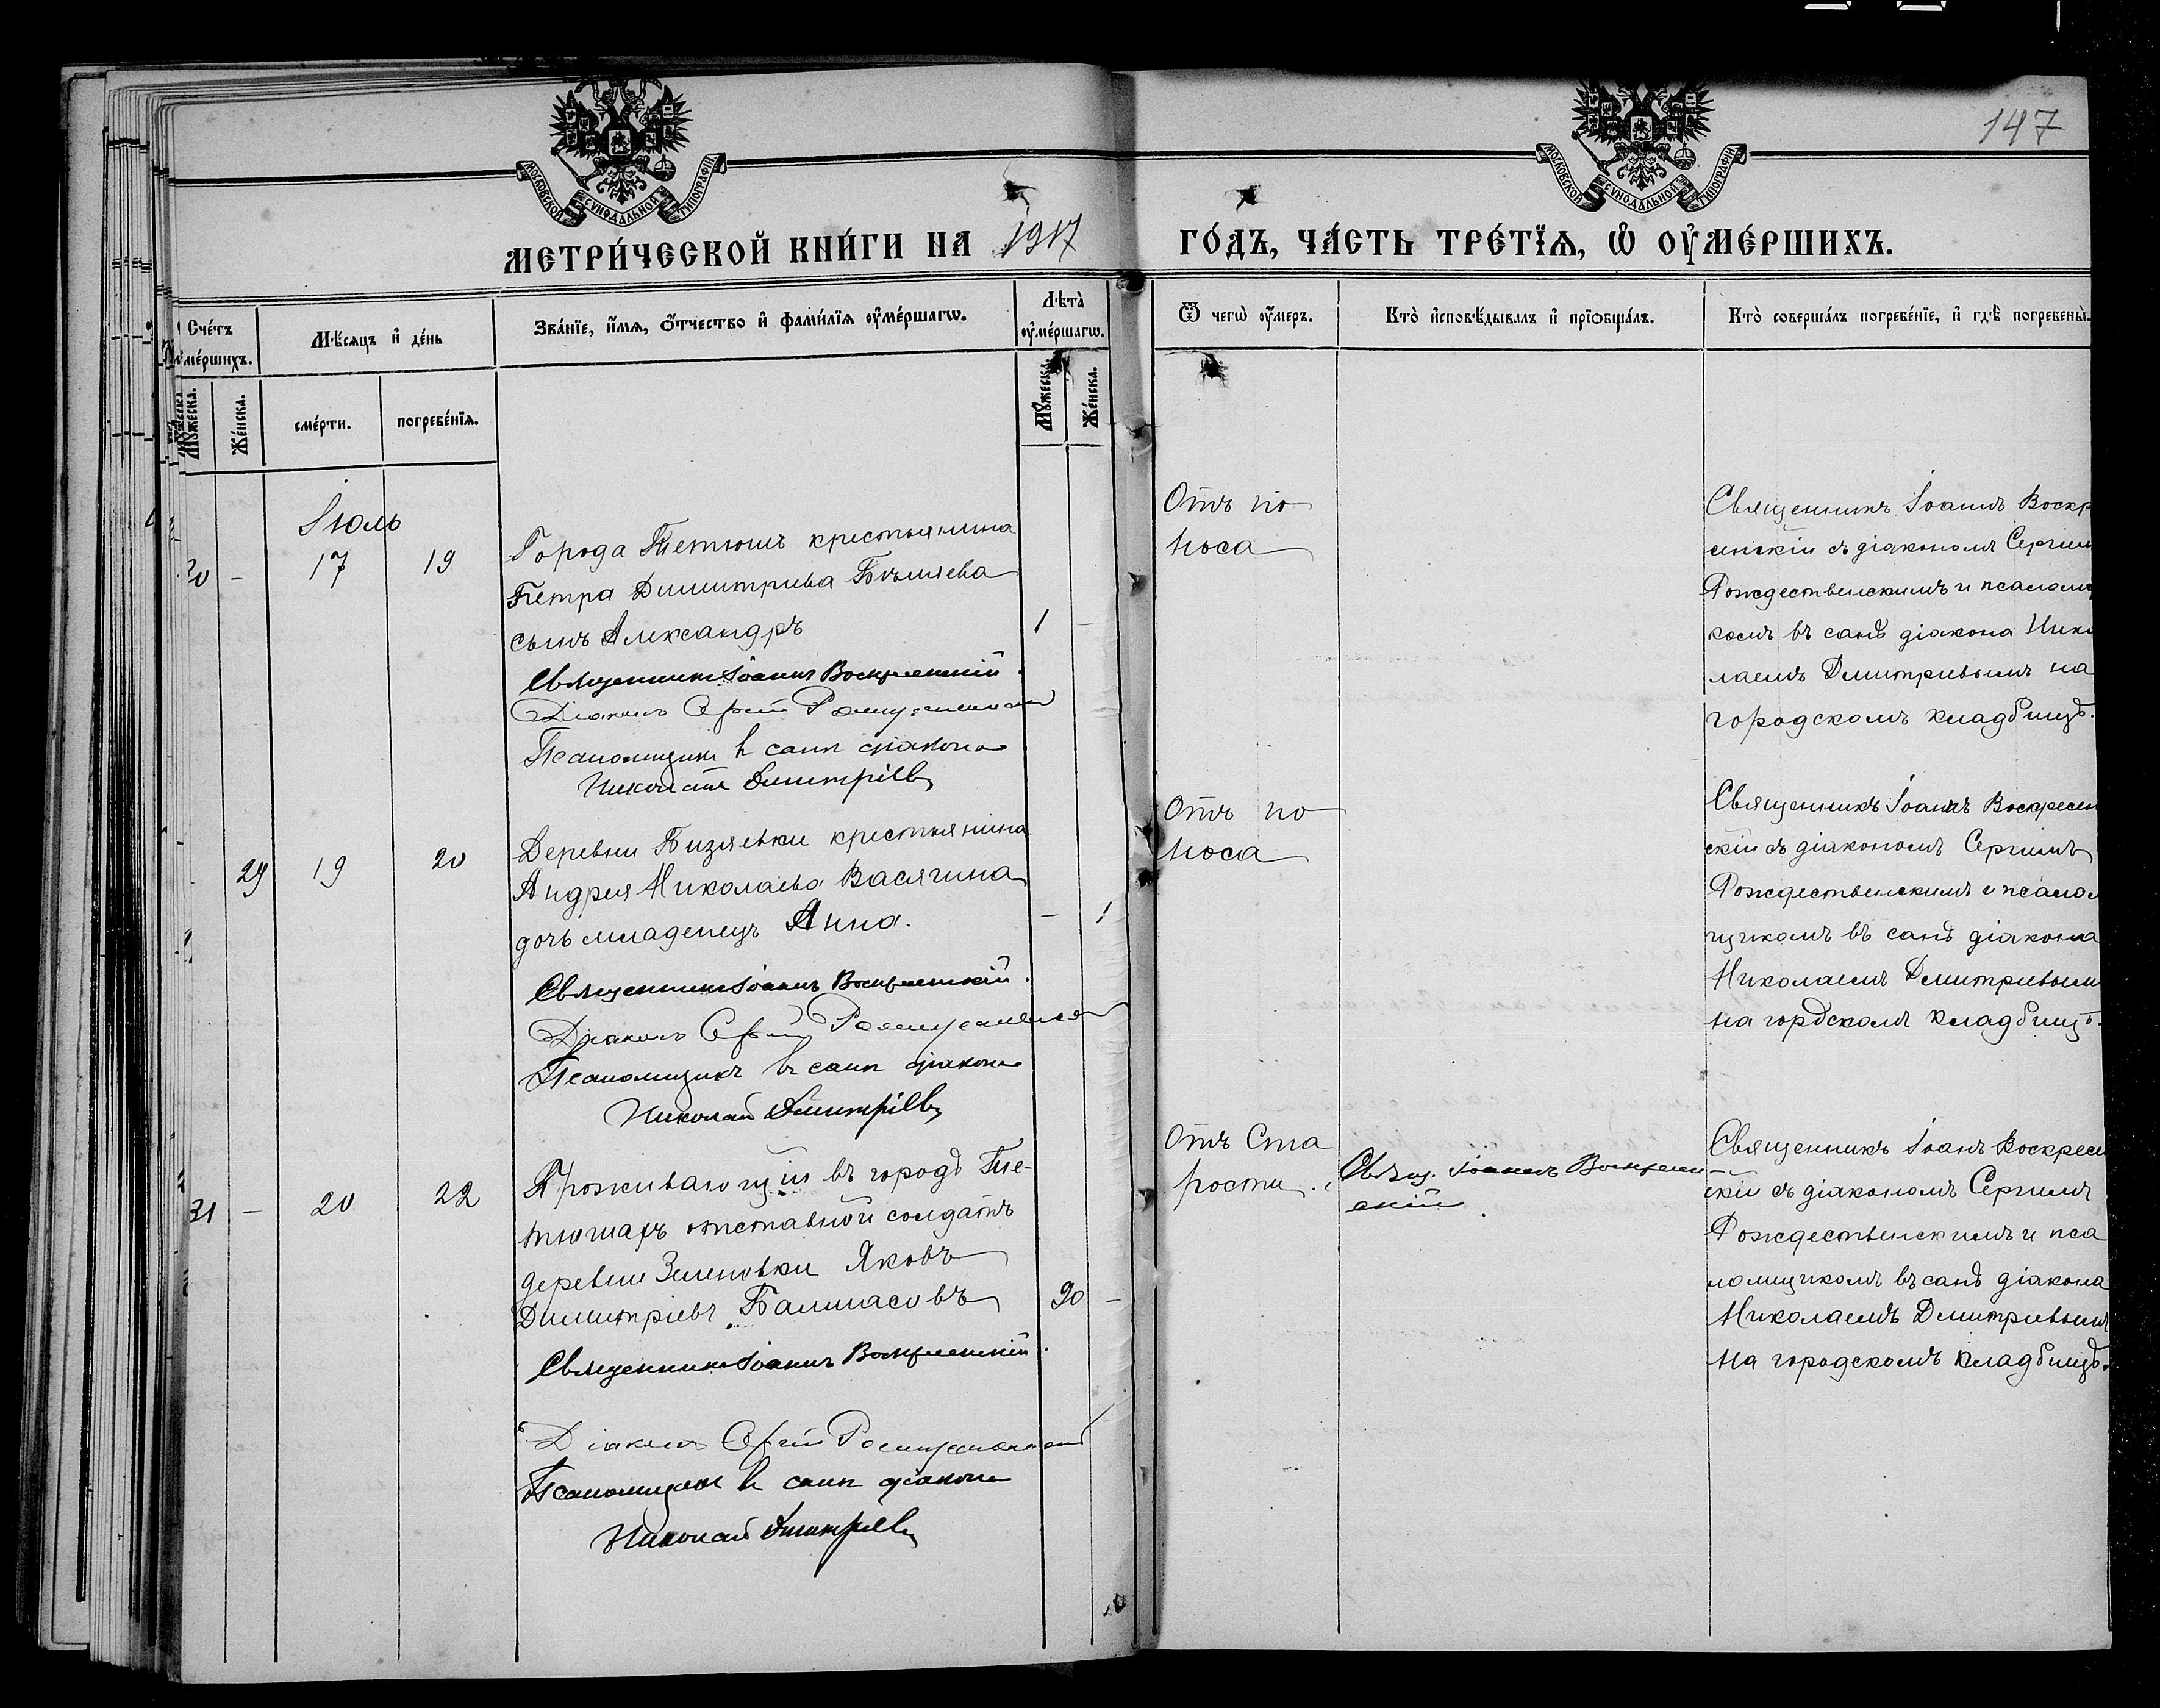 147
МОСКОВСКОЙ СУНОДАЛЬНОЙ ТИПОГРАФІИ
МОСКОВСКОЙ СУНОДАЛЬНОЙ ТИПОГРАФІИ
МЕТРИ́ЧЕСКОЙ КНИ́ГИ НА 1917 ГО́ДЪ, ЧА́СТЬ ТРЕ́ТЇѦ, Ѡ҆ ОУ҆МЕ́РШИХЪ.
Сче́тъ
ᲂу҆ме́ршихъ.
Мѣ́сяцъ и҆ де́нь
Зва́нїе, и҆́мѧ, ѻ҆́тчество и҆ фами́лїѧ ᲂу҆ме́ршагѡ.
Лѣта̀
ᲂу҆ме́ршагѡ.
Ѿ чегѡ̀ ᲂу҆́меръ.
Кто̀ и҆сповѣ́дывалъ и҆ прїѻбща́лъ.
Кто̀ соверша́лъ погребе́нїе, и҆ гдѣ̀ погребены̀.
Мꙋ́жеска.
Же́нска.
сме́рти.
погребе́нїѧ.
Мꙋ́жеска.
Же́нска.
Іюль
30 - 17 19
Города Тетюшъ крестьянина
Петра Димитрива Бѣляева
сынъ Александръ
1 -
Священникъ Іоаннъ Воскресенскій.
Діаконъ Сергій Рождественскій
Псаломщикъ въ санѣ діакона
Николай Дмитріевъ
Отъ по
носа
Священникъ Іоаннъ Воскр
сенскій съ діакономъ Сергіем
Рождественскимъ и псаломщ
комъ въ санѣ діакона Нико
лаемъ Дмитріевымъ на
городскомъ кладбищѣ.
29 19 20
Деревни Бизяевки крестьянина
Андрея Николаева Васягина
дочь младенецъ Анна.
- 1
Священникъ Іоаннъ Воскресенскій.
Діаконъ Сергій Рождественскій
Псаломщикъ въ санѣ діакона
Николай Дмитріевъ
Отъ по
носа
Священникъ Іоаннъ Воскресен
скій съ діакономъ Сергіемъ
Рождественскимъ и псалом
щикомъ въ санѣ діакона
Николаемъ Дмитріевым
на гордскомъ кладбищѣ.
31 - 20 22
Проживающій въ городѣ Те-
тюшахъ отставной солдатъ
деревни Зеленовки Яковъ
Димитріевъ Балмасовъ
90 -
Священникъ Іоаннъ Воскресенскій.
Діаконъ Сергій Рождественскій
Псаломщикъ въ санѣ діакона
Николай Дмитріевъ
Отъ Ста
рости.
Свящ. Іоаннъ Воскресен
скій.
Священникъ Іоанъ Воскресен
скій съ діакономъ Сергіемъ
Рождественскимъ и пса
ломщикомъ въ санѣ діакона
Николаемъ Дмитріевым
на городскомъ кладбищѣ.